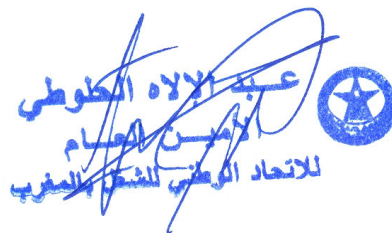 عبد الإلاه الحلوطي
الأمين العام
للاتحاد الوطني للشغل بالمغرب